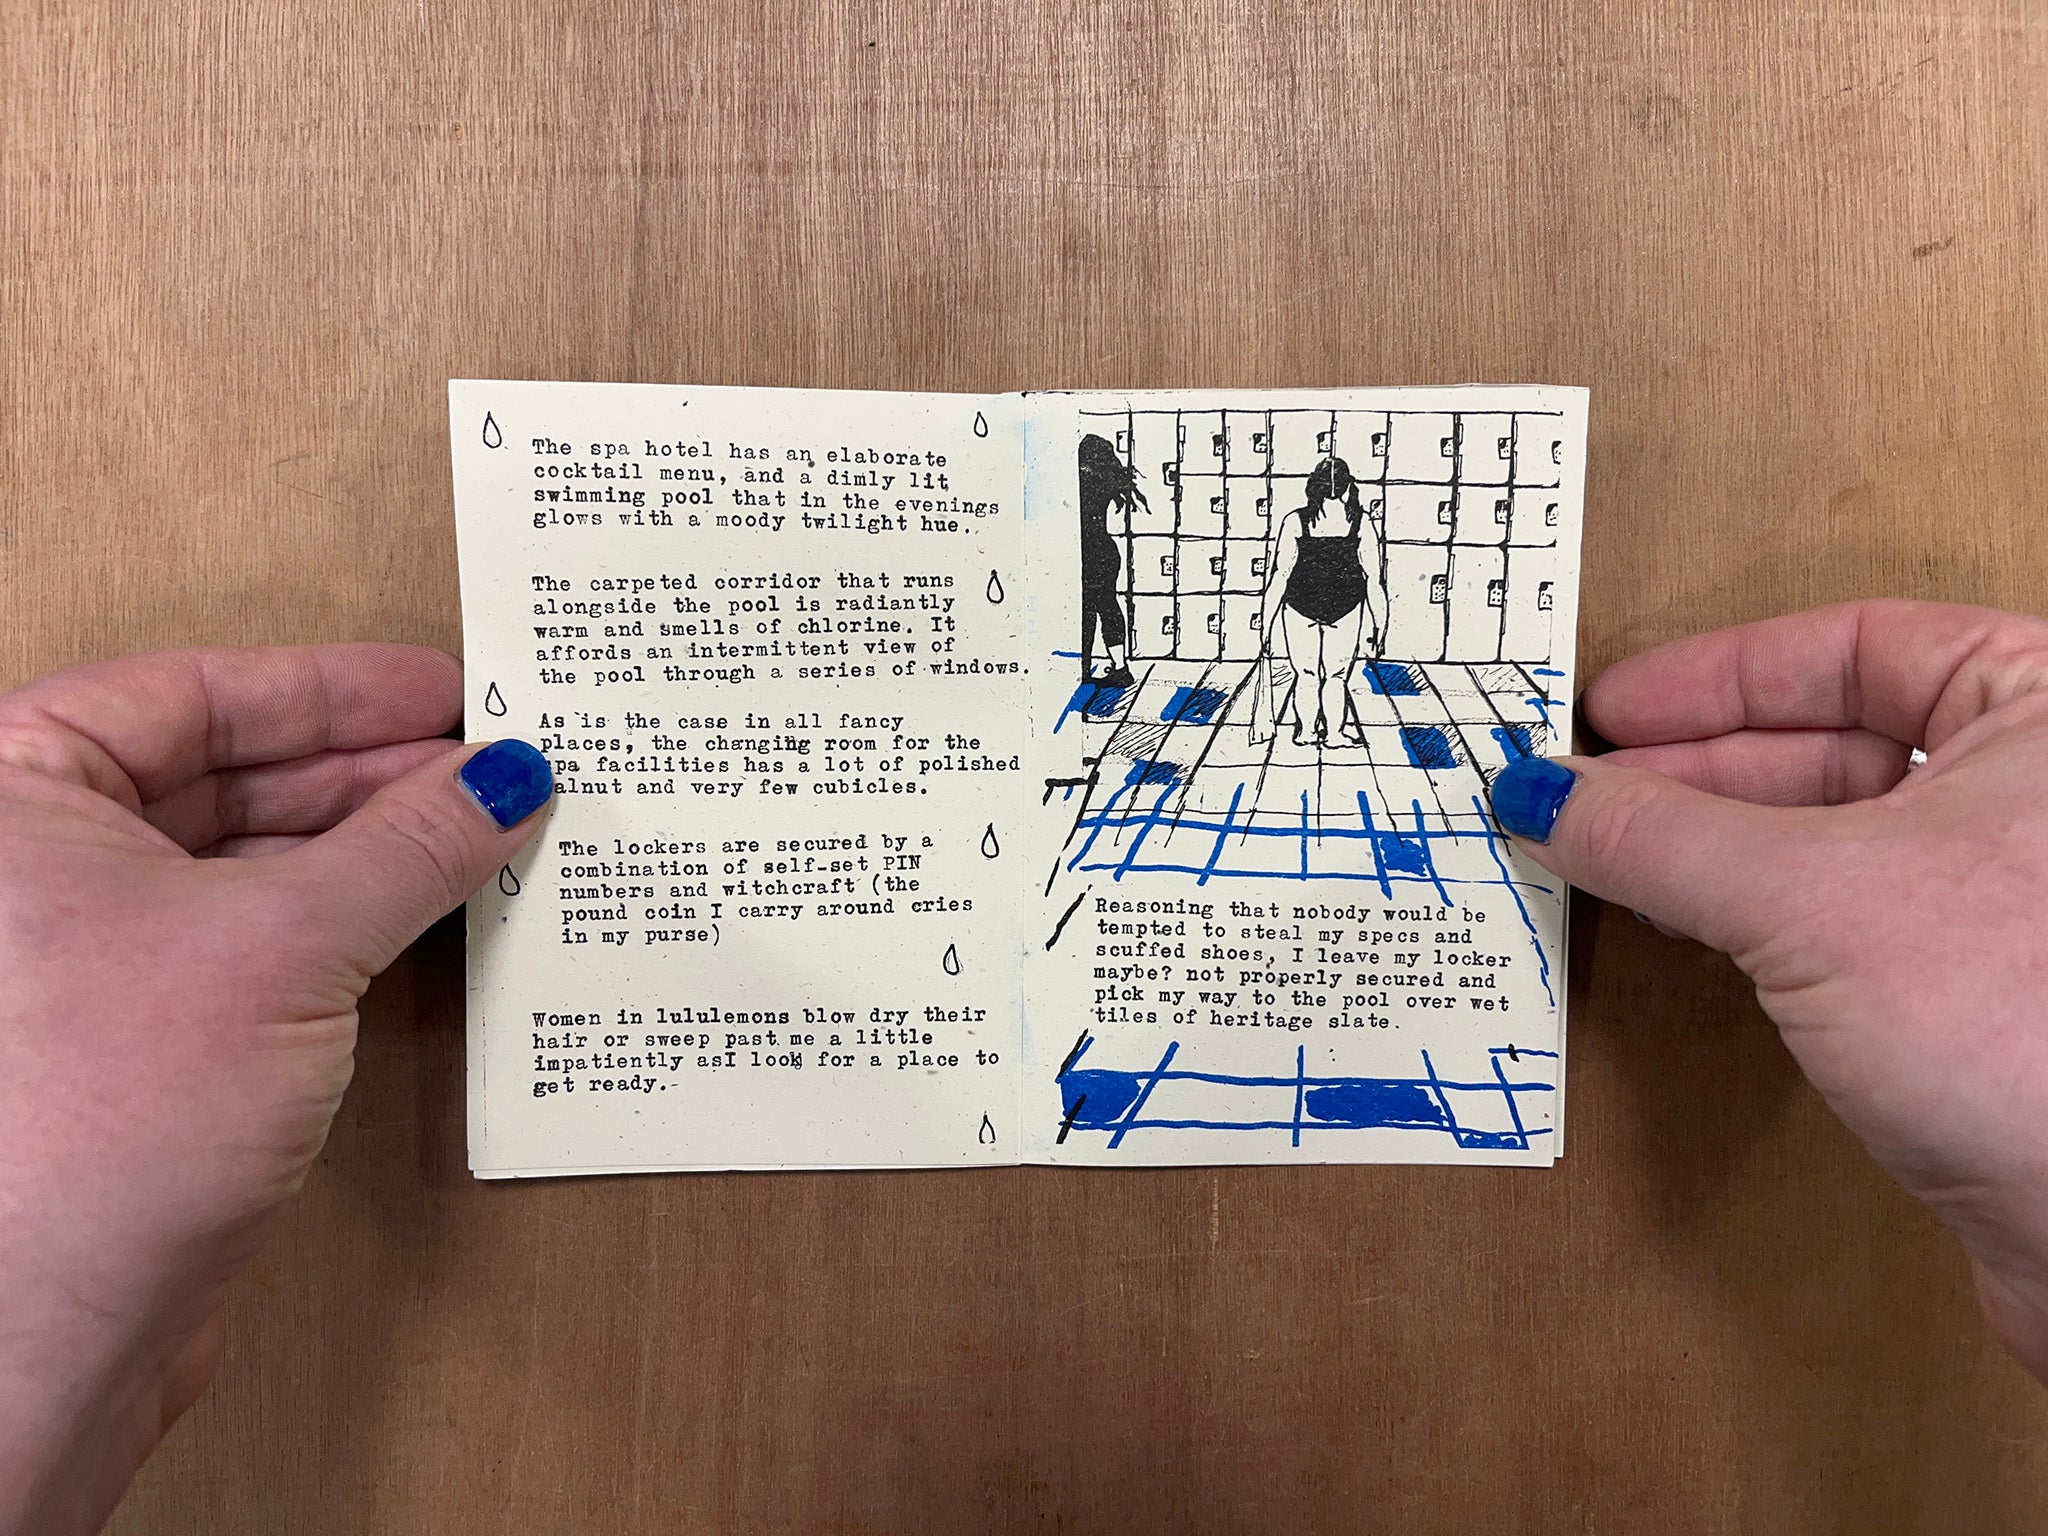 The spa hotel has an elaborate
cocktail menu, and a dimly lit
swimming pool that in the evenings
glows with a moody twilight hue.
The carpeted corridor that runs
alongside the pool is radiantly
warm and smells of chlorine. It
affords an intermittent view of
the pool through a series of windows.
As is the case in all fancy
places, the changing room for the
spa facilities has a lot of polished
alnut and very few cubicles.
The lockers are secured by a
combination of self-set PIN
numbers and witchcraft (the
pound coin I carry around cries
in my purse)
Women in lululemons blow dry their
hair or sweep past me a little
impatiently asI look for a place to
get ready.-
Reasoning that nobody would be
tempted to steal my specs and
scuffed shoes, I leave my locker
maybe? not properly secured and
pick my way to the pool over wet
tiles of heritage slate.